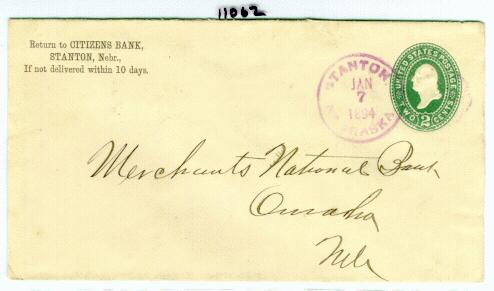 11062
Return to CITIZENS BANK,
STANTON, Nebr.,
If not delivered within 10 days.
STANTON
JAN
7
1894
NEBRASKA
UNITED STATES POSTAGE
TWO 2 CENTS
Merchants National Bank
Omaha
Neb